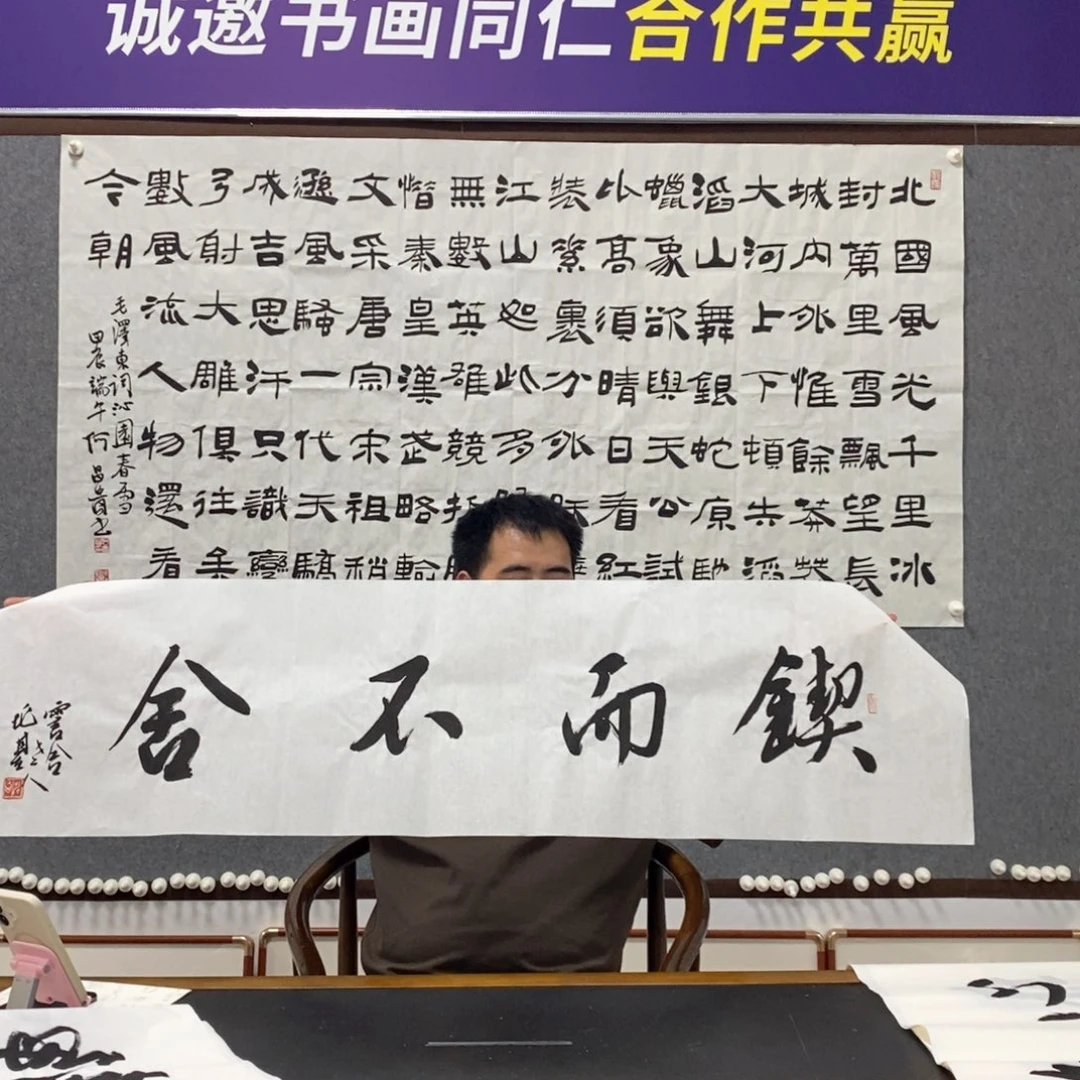 诚邀书画同仁合作共赢
北國風光千里冰
封萬里雪飄望長
城内外惟餘莽莽
大河上下頓失滔
滔山舞銀蛇原馳
蠟象欲與天公試
比高須晴日看紅
裝素裹分外
江山如此多
無數英雄競折
惜秦皇漢武略輸
文采唐宗宋祖稍
遜風騷一代天驕
成吉思汗只識彎
弓射大雕俱往矣
數風流人物還看
今朝
毛澤東詞沁園春雪
甲辰端午何昌貴书
鍥而不舍